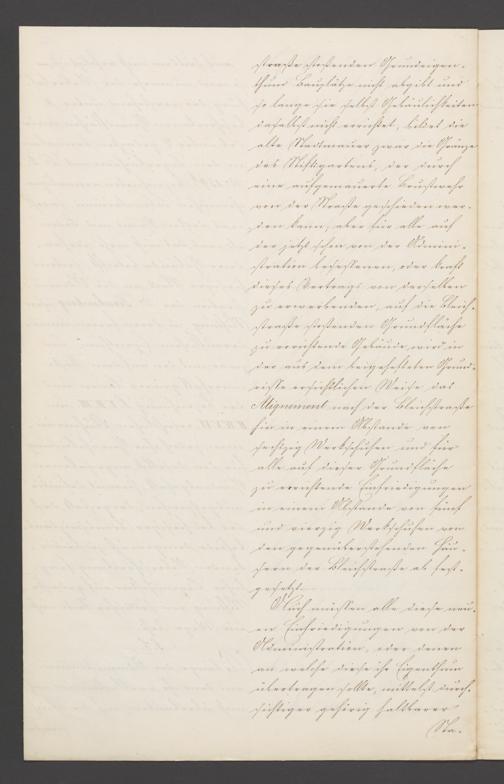 straße stoßenden Grundeigen-
thum Bauplätze nicht abgibt und
so lange sie selbst Gebäulichkeiten
daselbst nicht errichtet, bildet die
alte Stadtmauer zwar die Gränze
des Stiftsgartens, der durch
eine aufgemauerte Brustwehr
von der Straße geschieden wer-
den kann, aber für alle auf
der jetzt schon von der Admini-
stration besessenen, oder kraft
dieses Vertrags von derselben
zu erwerbenden, auf die Bleich-
straße stoßenden Grundfläche
zu errichtende Gebäude, wird in
der aus dem beigehefteten Grund-
risse ersichtlichen Weise das
Alignement nach der Bleichstraße
hin in einem Abstande von
sechszig Werkschuhen und für
alle auf dieser Grundfläche
zu errichtende Einfriedigungen
in einem Abstande von fünf
und vierzig Werkschuhen von
den gegenüberstehenden Häu-
sern der Bleichstraße ab fest-
gesetzt.
Auch müssen alle diese neu-
en Einfriedigungen von der
Administration, oder denen
an welche diese ihr Eigenthum
übertragen sollte, mittelst durch-
sichtiger gehörig haltbarer
Sta-